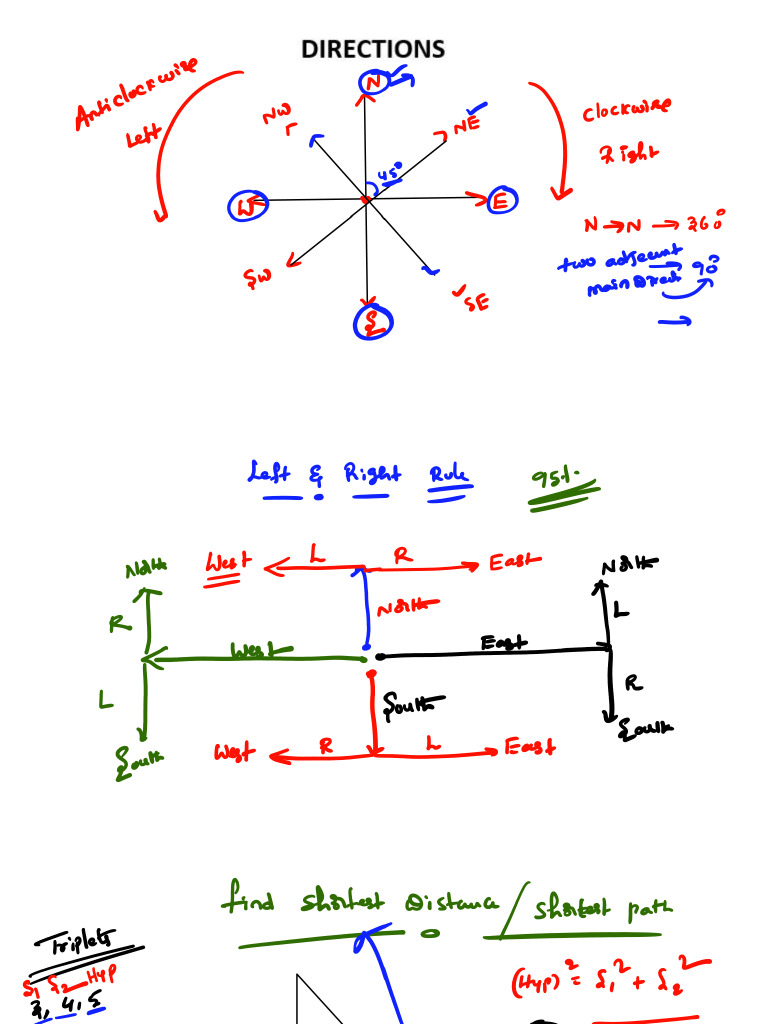 DIRECTIONS
Anticlockwise
Left
N
NW
NE
45°
Clockwise
Right
W
E
N → N → 360°
two adjacent → 90°
main Direct
SW
SE
S
Left & Right Rule 95%
North
West L R East
North
R
North
L
West
East
L
South
R
South
West R L East
South
find shortest Distance / shortest path
Triplets
S1 S2 Hyp
3, 4, 5
(Hyp)² = S1² + S2²